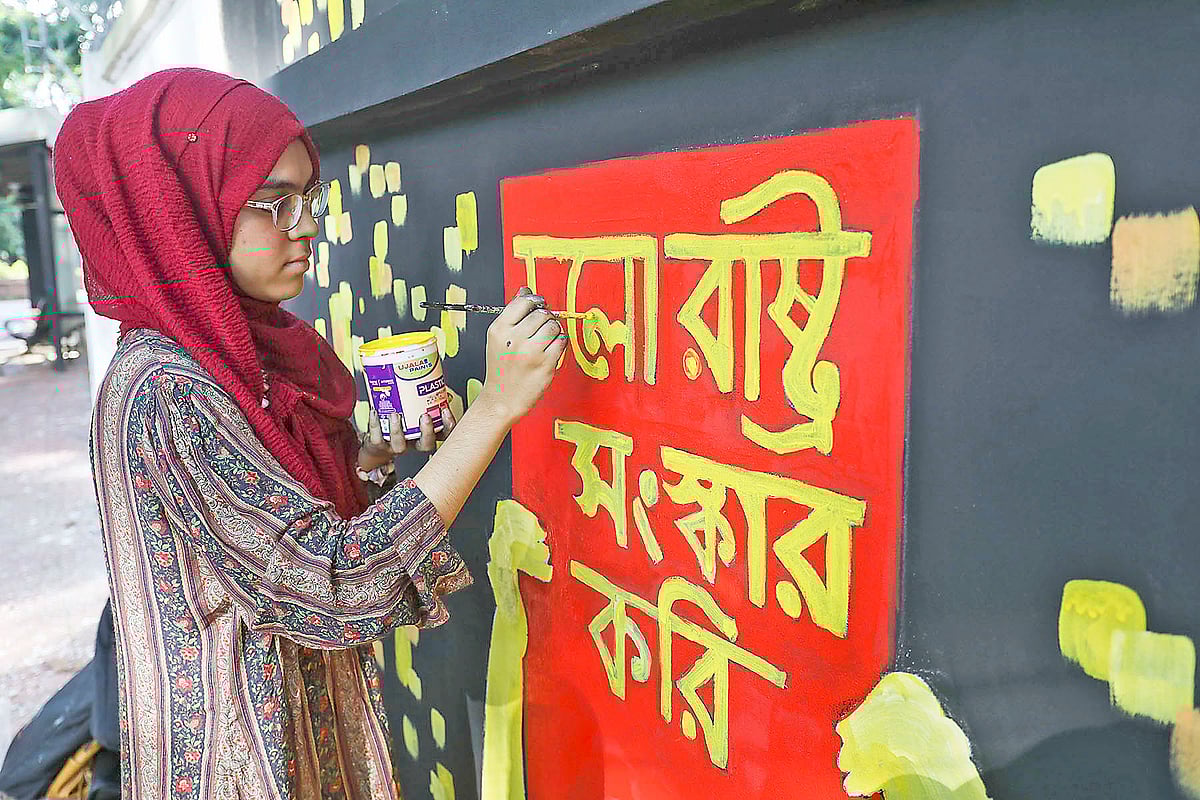 চলো রাষ্ট্র
সংস্কার
করি
UJALA
PAINTS
PLASTIC